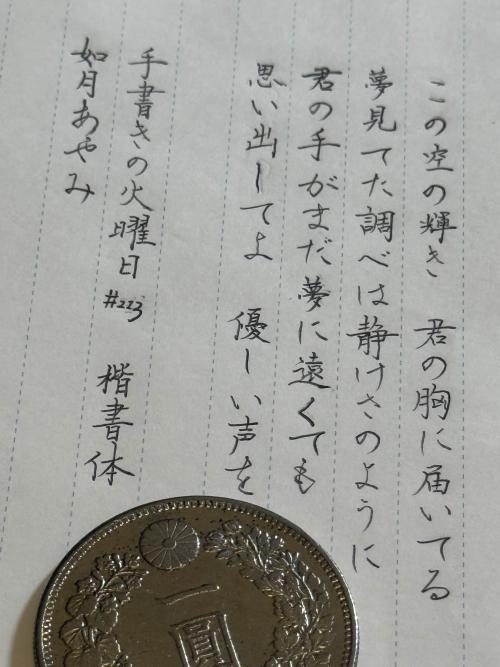 この空の輝き 君の胸に届いてる
夢見てた調べは静けさのように
君の手がまだ夢に遠くても
思い出してよ 優しい声を
手書きの火曜日#223 楷書体
如月あやみ
一圓